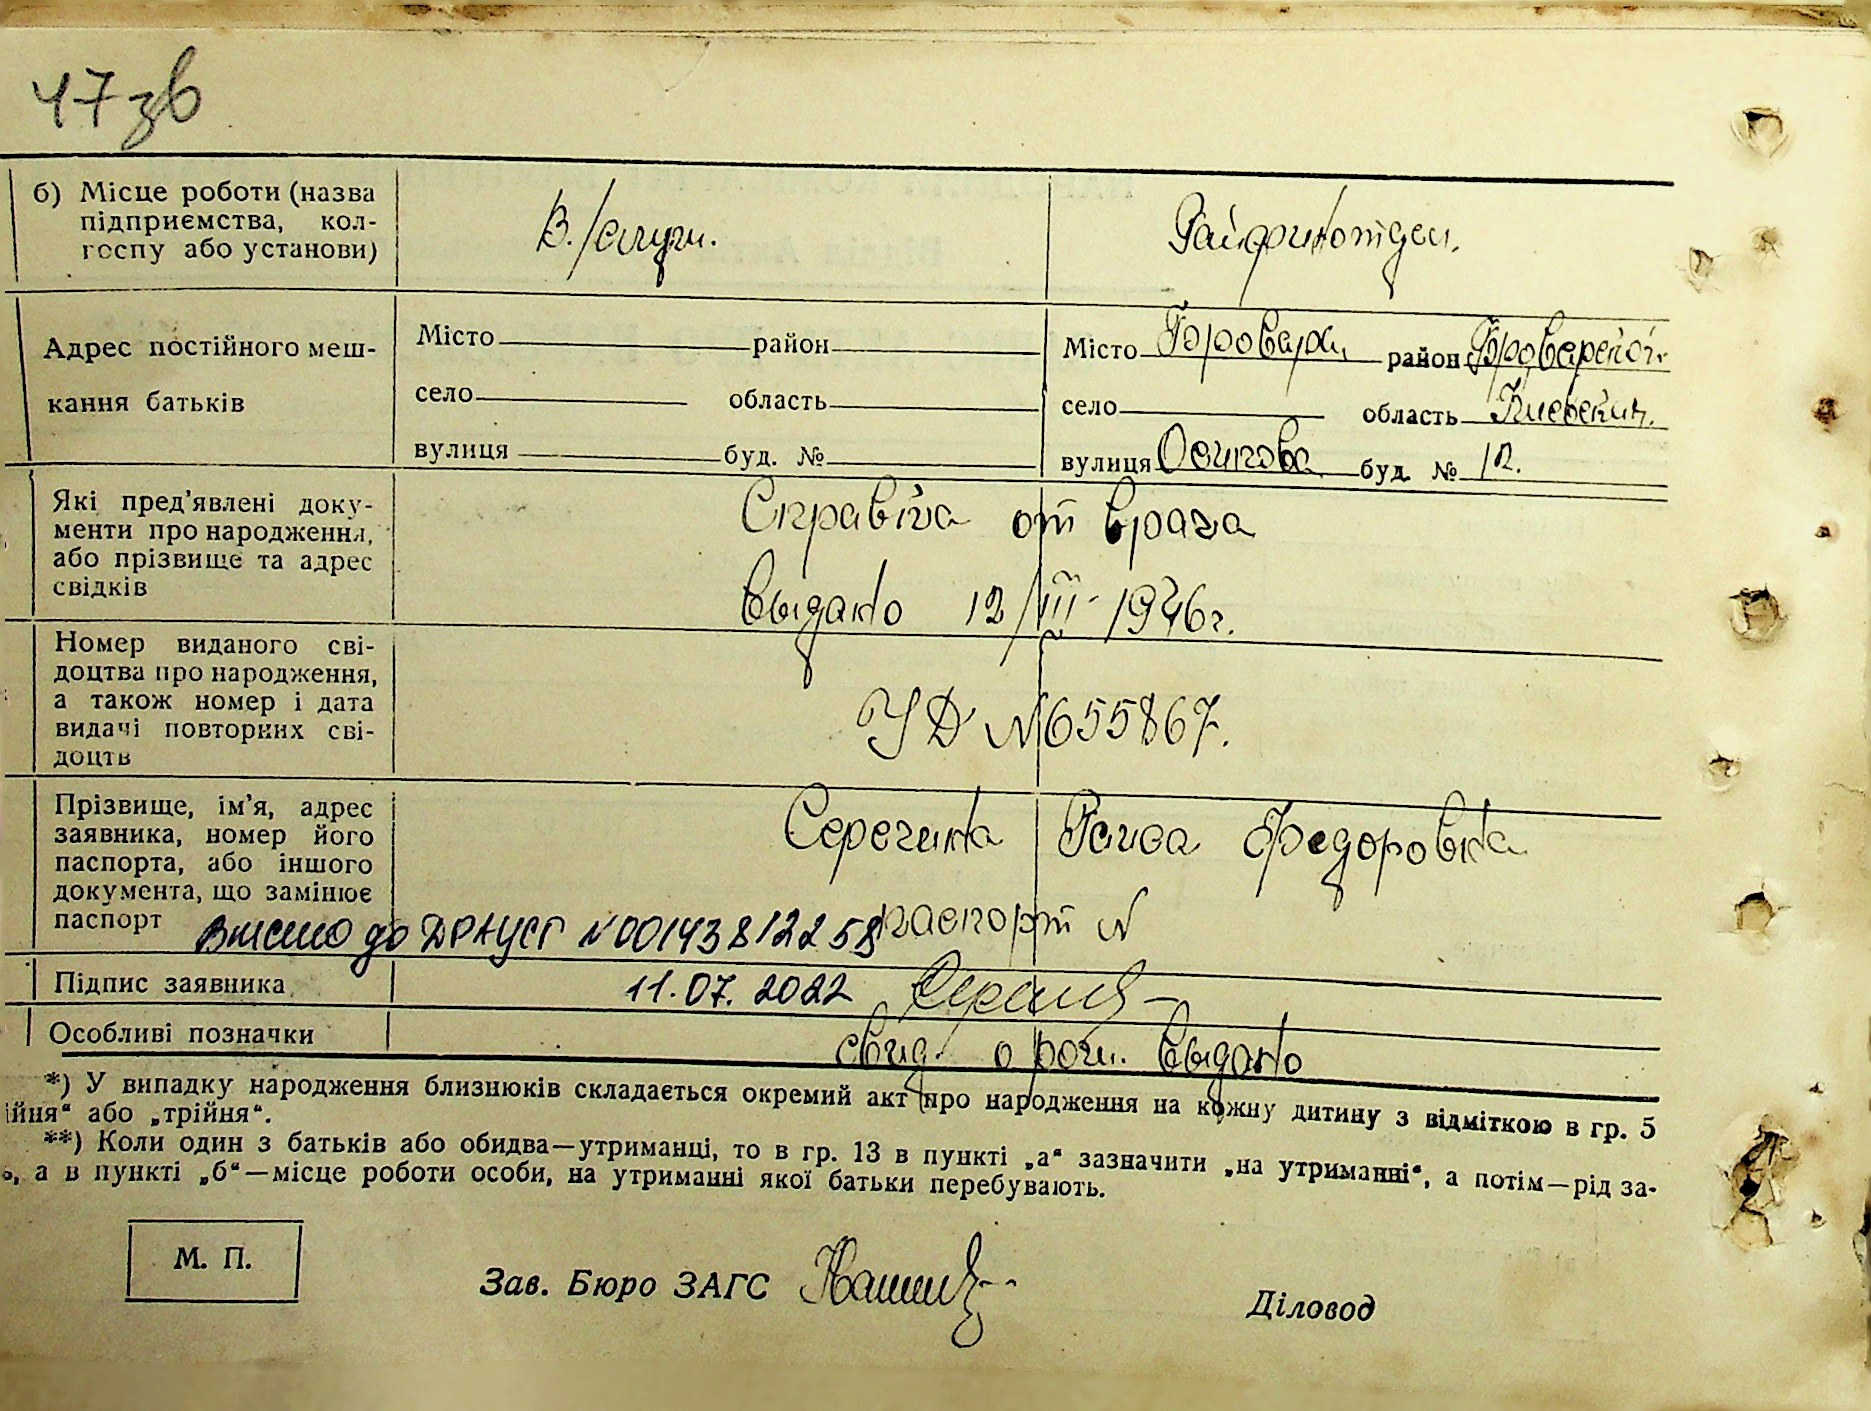 47 зв
б) Місце роботи (назва
підприємства, кол-
госпу або установи)
В./служ.
Райфинотдел.
Адрес постійного меш-
кання батьків
Місто район
село область
вулиця буд. №
Місто Бровары район Броварской
село область Киевская
вулиця Осипова буд. № 12.
Які пред'явлені доку-
менти про народження,
або прізвище та адрес
свідків
Справка от врача
выдано 12/III-1946г.
Номер виданого сві-
доцтва про народження,
а також номер і дата
видачі повторних сві-
доцтв
УД №655867.
Прізвище, ім'я, адрес
заявника, номер його
паспорта, або іншого
документа, що замінює
паспорт
Серегина Раиса Федоровна
паспорт №
Внесено до ДРАЦСГ №00143812258
Підпис заявника
11.07.2022
Особливі позначки
свид. о рож. выдано
*) У випадку народження близнюків складається окремий акт про народження на кожну дитину з відміткою в гр. 5
ійня" або „трійня".
**) Коли один з батьків або обидва—утриманці, то в гр. 13 в пункті „а" зазначити „на утриманні", а потім—рід за-
, а в пункті „б"—місце роботи особи, на утриманні якої батьки перебувають.
М. П.
Зав. Бюро ЗАГС
Діловод